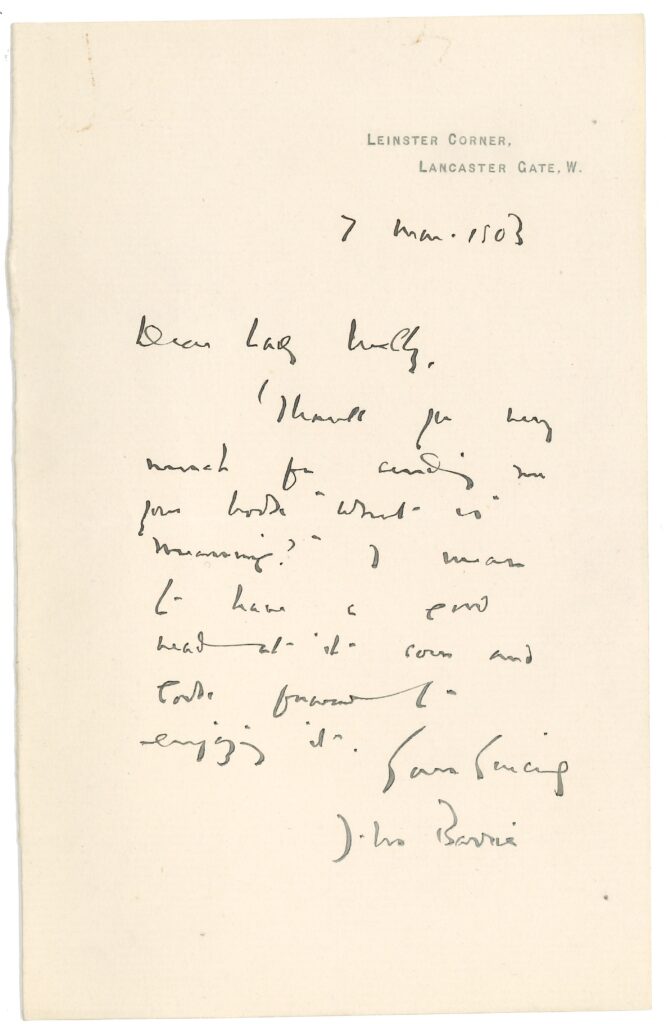 LEINSTER CORNER,
LANCASTER GATE, W.
7 Mar. 1903
Dear Lady Welby,
Thank you very
much for sending me
your book "What is
Meaning?" I mean
to have a good
read at it soon and
look forward to
enjoying it.
Yours sincerely
J. M. Barrie